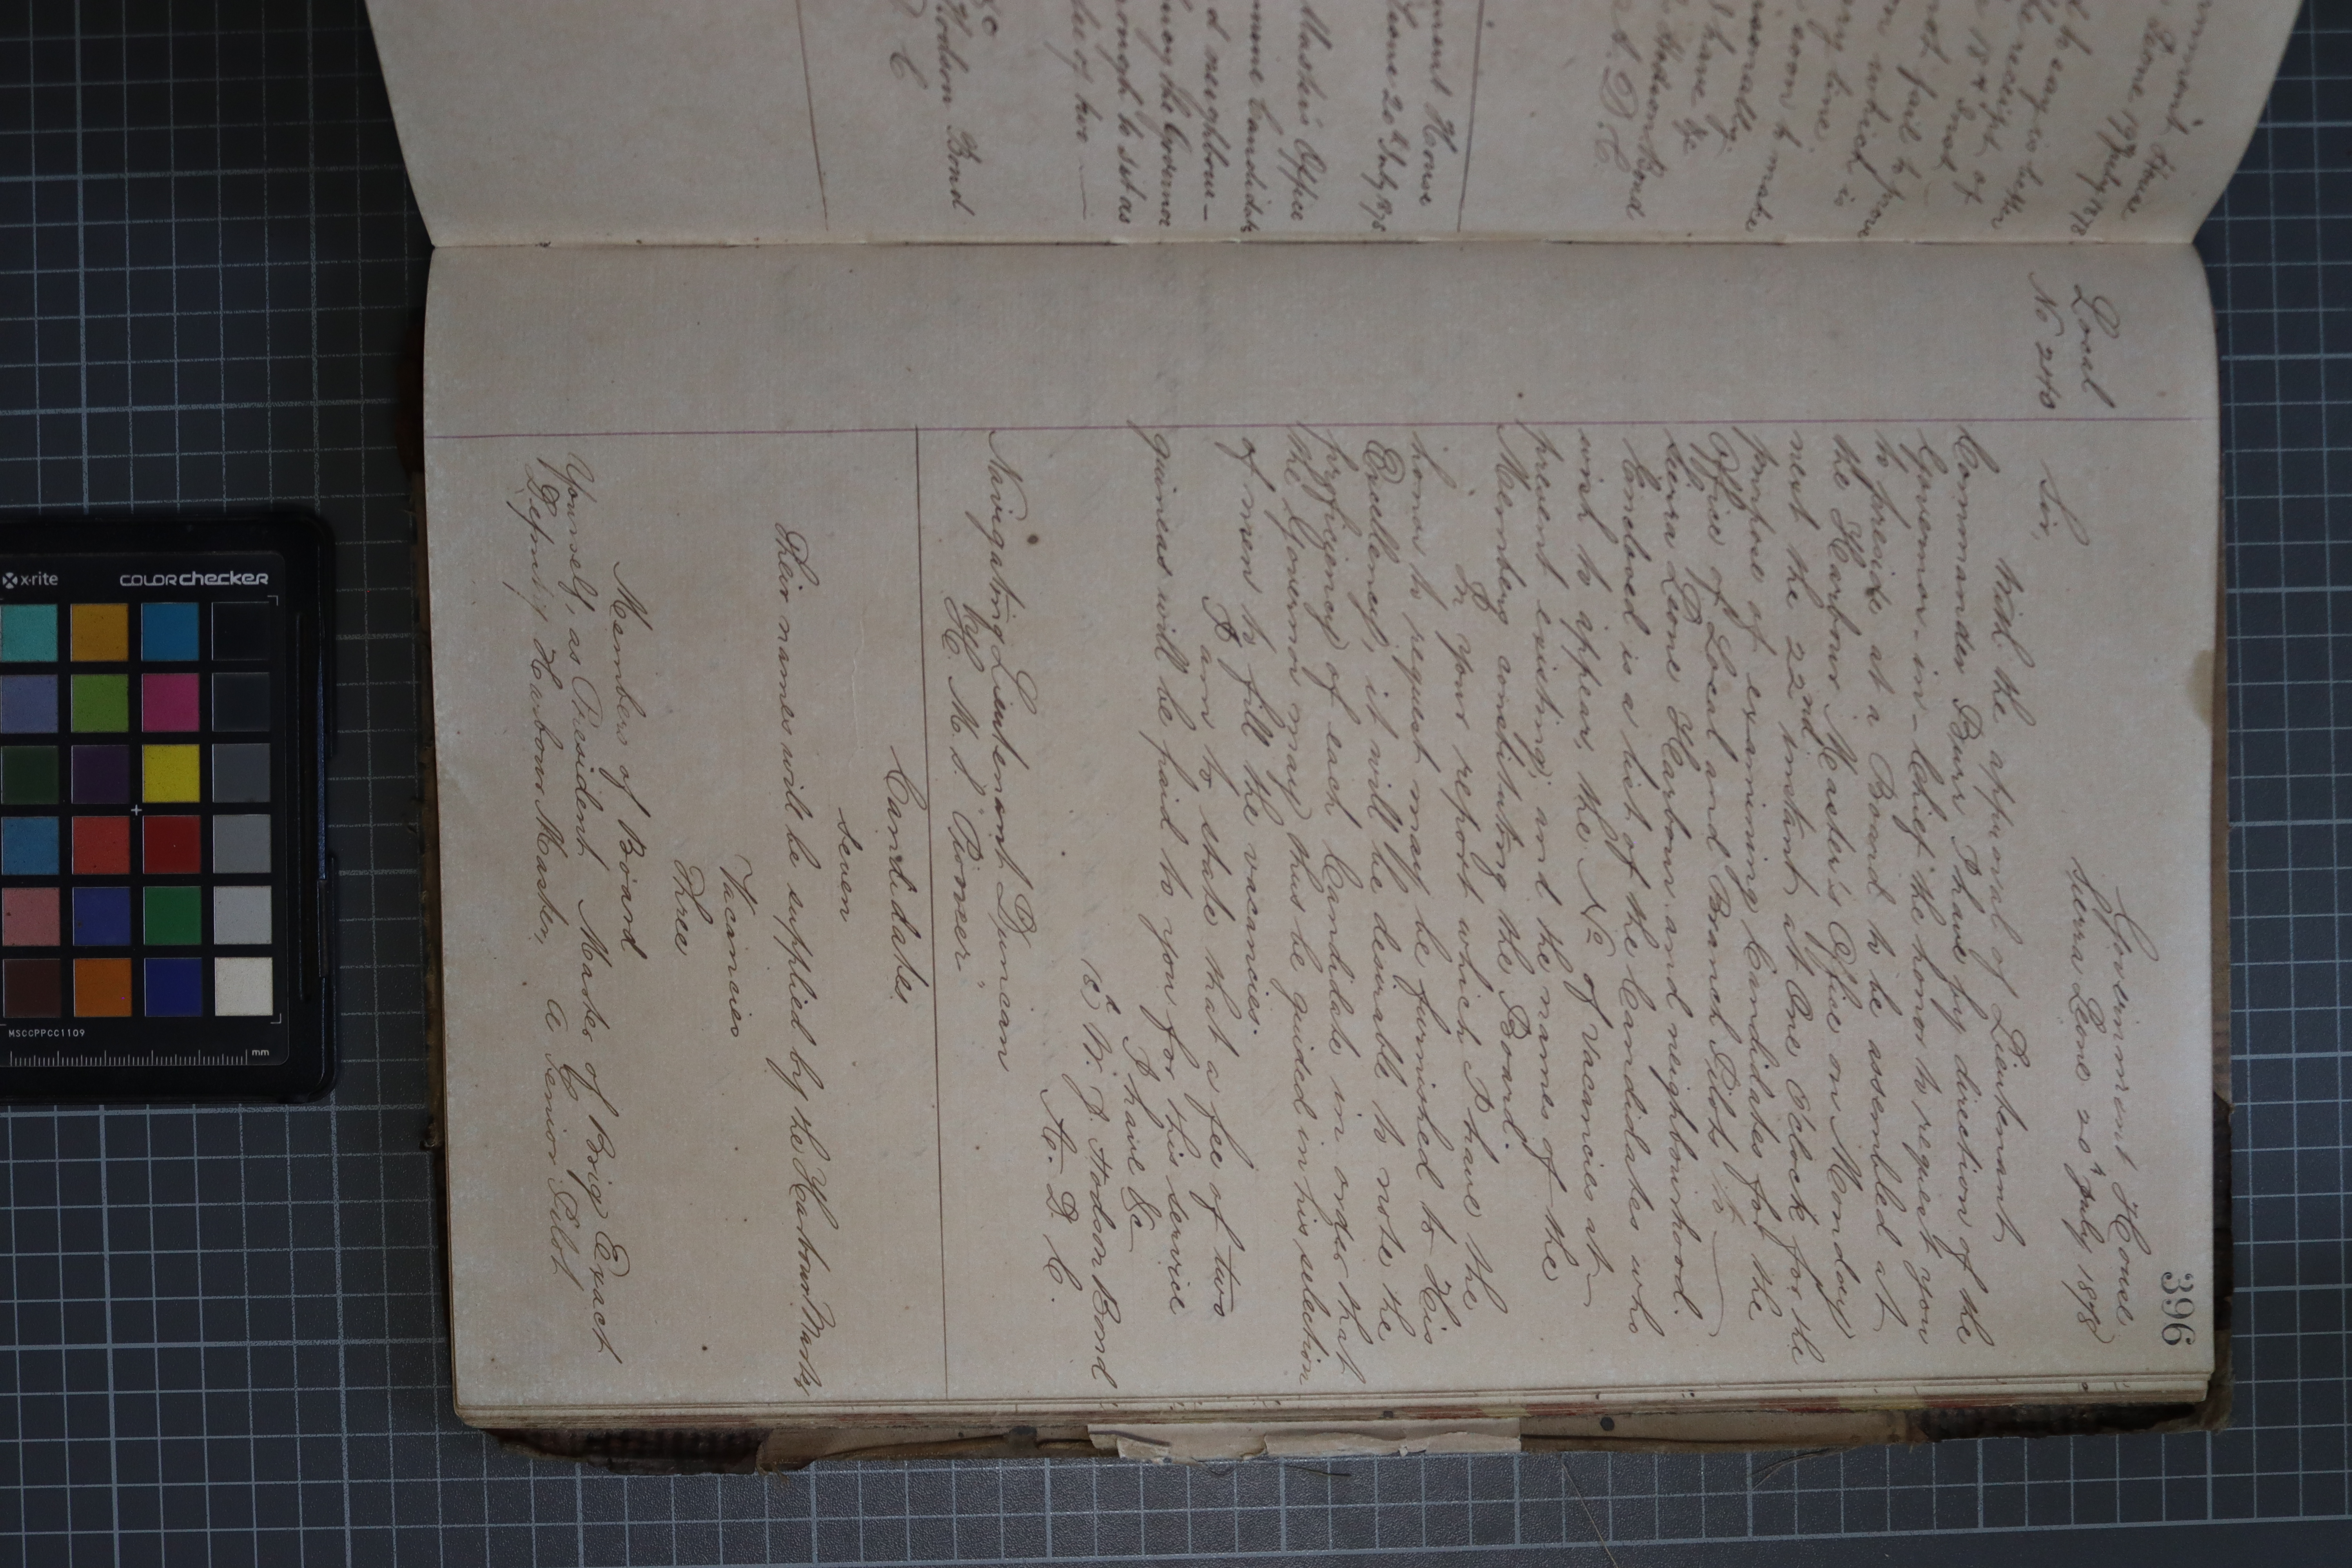 396
Government House
Sierra Leone 20th July 1878
Local
No 240
Sir,
With the approval of Lieutenant
Commander Burr, I have by direction of the
Governor-in-Chief the honor to request you
to preside at a Board to be assembled at
the Harbour Master's Office on Monday
next the 22nd instant at One Oclock for the
purpose of examining Candidates for the
Office of Local and Branch Pilots to
Sierra Leone Harbour and neighbourhood.
Enclosed is a list of the Candidates who
wish to appear, the No of vacancies at
present existing, and the names of the
Members constituting the Board.
In your report which I have the
honor to request may be furnished to His
Excellency, it will be desirable to note the
proficiency of each Candidate in order that
the Governor may thus be guided in his selection
of men to fill the vacancies.
I am to state that a fee of two
guineas will be paid to you for this service
I have &c
W. J. Hodson Bond
A. D. C.
Navigating Lieutenant Duncan
H. M. S. "Pioneer"
Candidates
Seven
Their names will be supplied by the Harbour Master
Vacancies
Three
Members of Board
Yourself, as President Master of Brig Exact
Deputy Harbour Master, A Senior Pilot
Government House
Leone 19th July 1878
receipt of
not fail to
on which is
ery time
soon to make
I have &c
Hodson Bond
A. D. C.
ment House
Leone 20th July 1878
Master's Office
amine Candidate
d neighbour-
the Governor
enough to sit as
fee of two
&c
Hodson Bond
D C